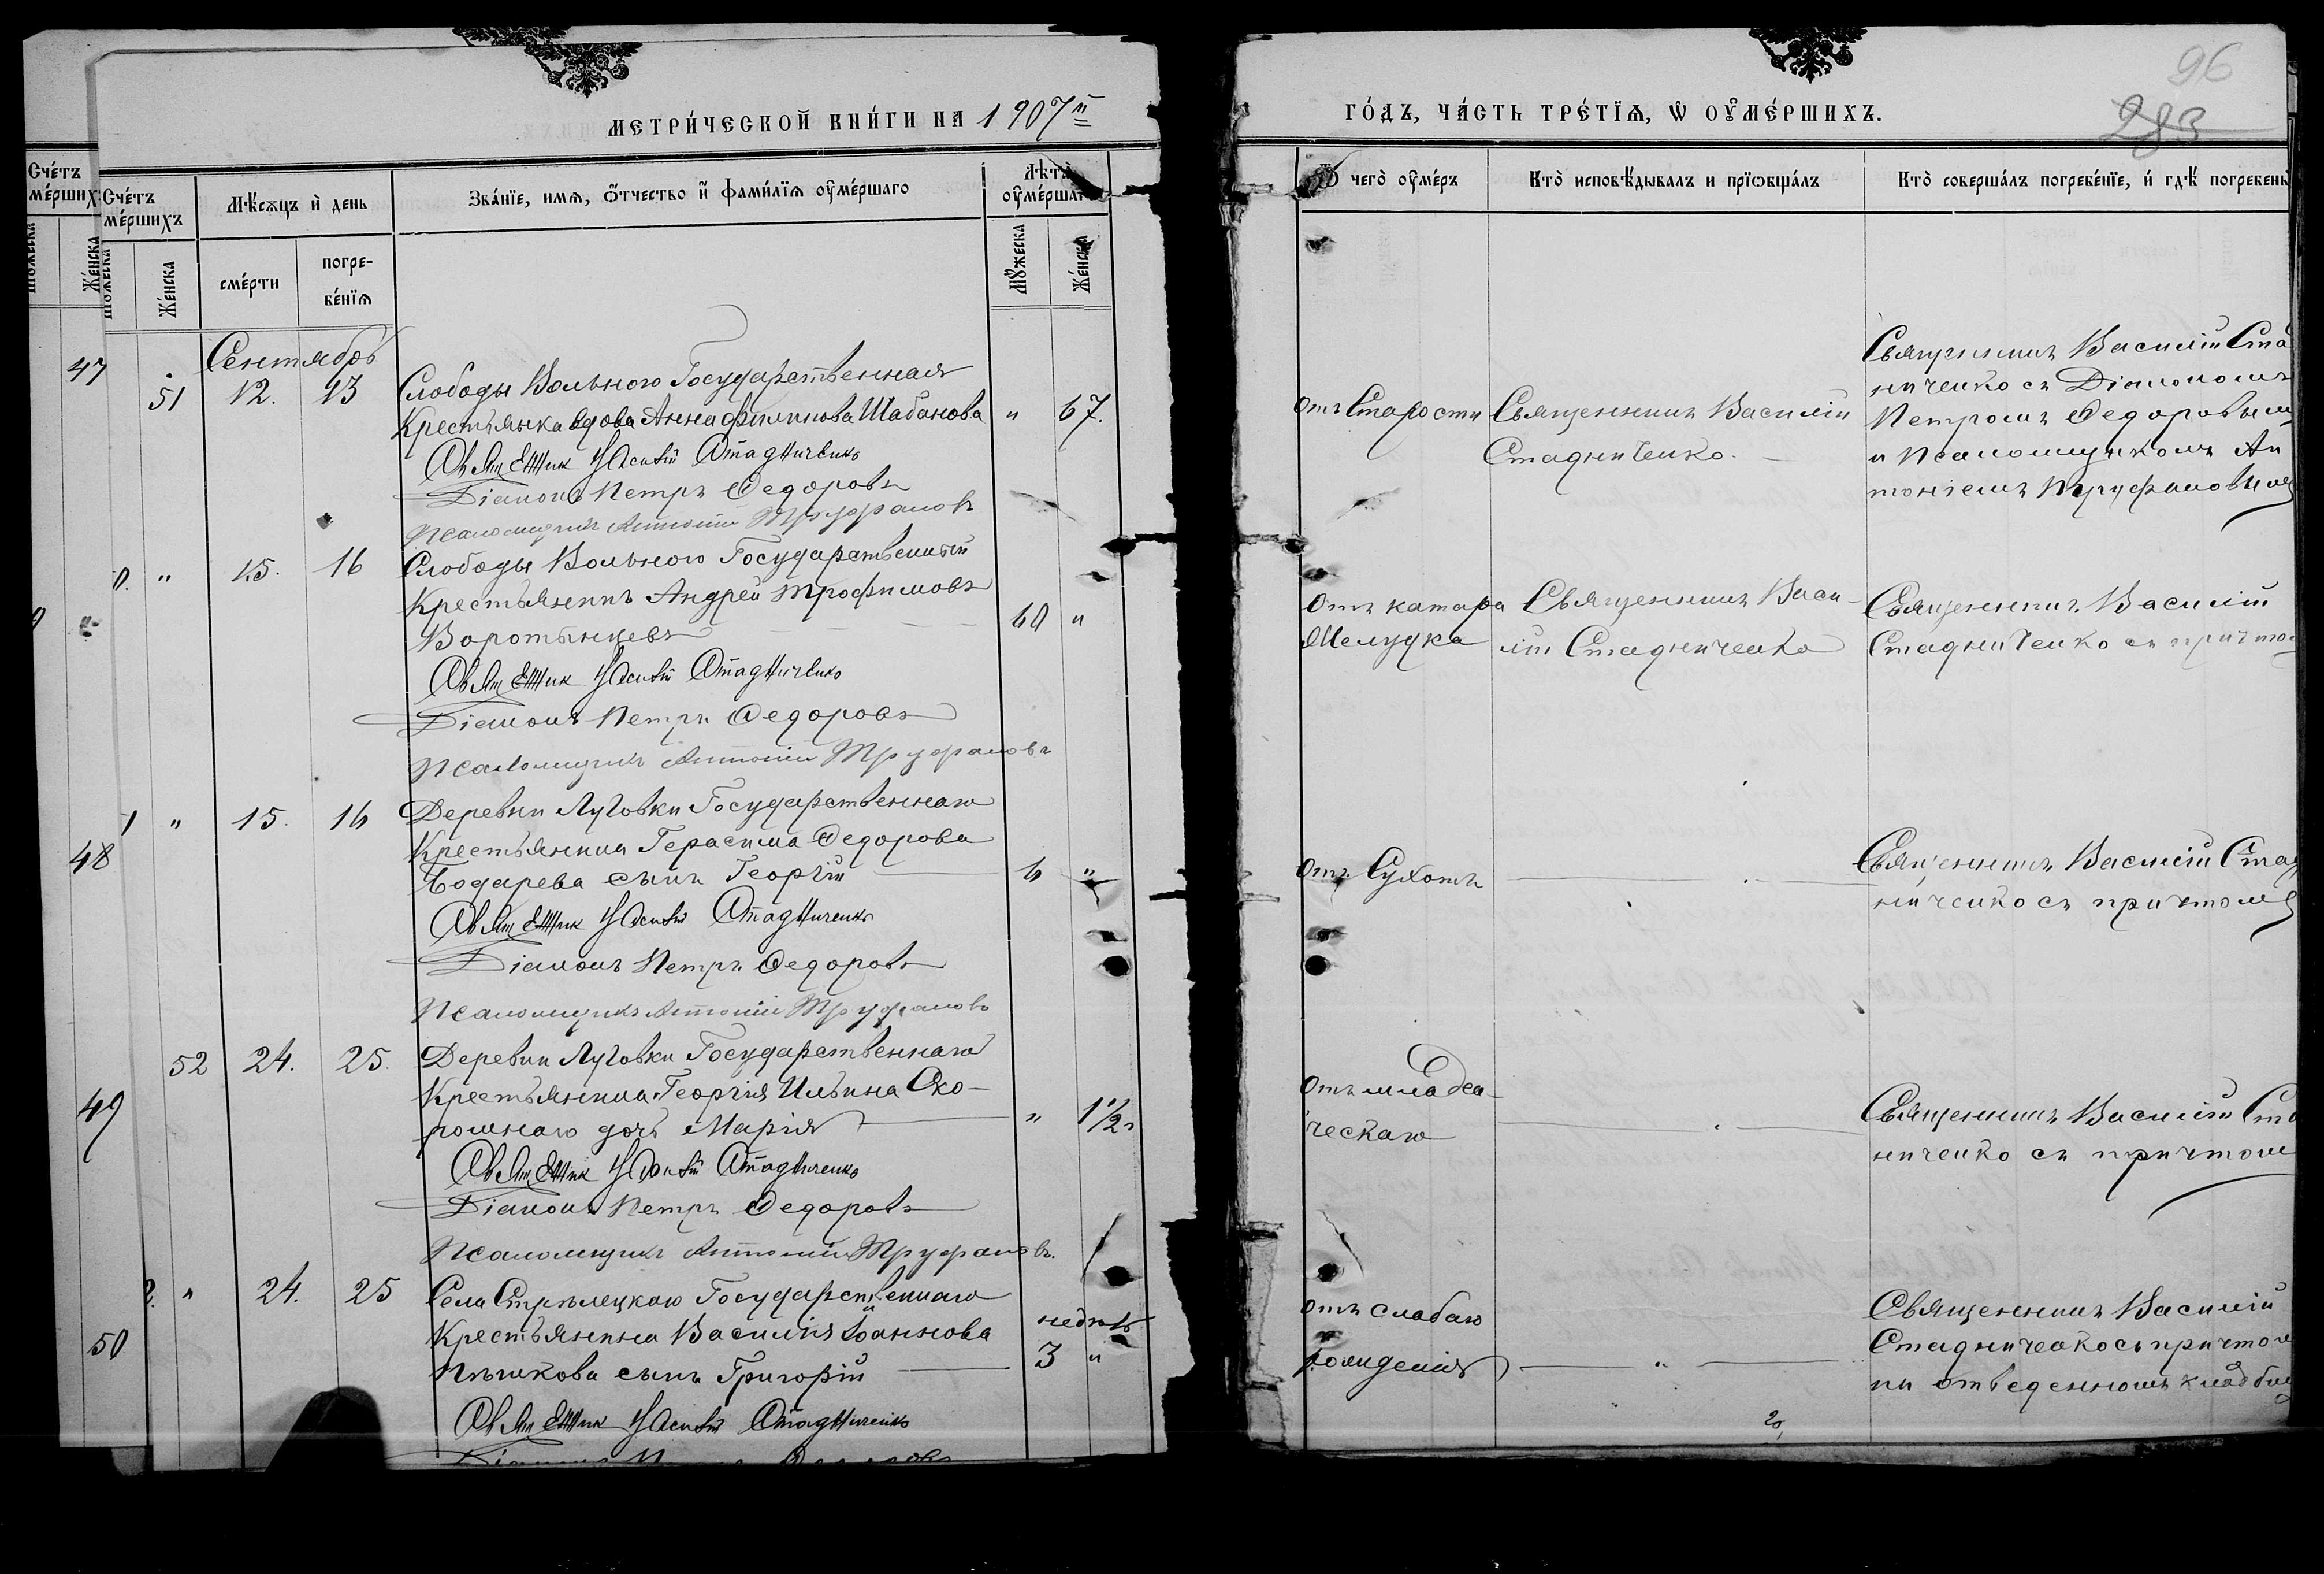 96
283
МЕТРИ́ЧЕСКОЙ КНИ́ГИ НА 1907й
ГО́ДЪ, ЧА́СТЬ ТРЕ́ТІѦ, Ѡ ОУМЕ́РШИХЪ.
Сче́тъ
ме́рших
Же́нска
47
48
49
50
Сче́тъ
ме́ршихъ
Же́нска
Мѣ́сяцъ и день
сме́рти
погре-
бе́нїѧ
Зва́нїе, имѧ, ѻ́тчество и҆ фами́лїѧ оумє́ршаго
Лѣта
оумє́ршаг
Мꙋ́жеска
Же́нска
чегѡ̀ оумє́ръ
Кто̀ исповѣ́дывалъ и прїѡбща́лъ
Кто̀ соверша́лъ погребе́нїе, и́ гдѣ̀ погребены̀
Сентябрь
51 12. 13
Слободы Вольного Государственная
Крестьянка вдова Анна Филиппова Шабанова
" 67.
Священник Василій Стадниченко
Діаконъ Петръ Федоровъ
Псаломщикъ Антоній Труфановъ
отъ Старости
Священникъ Василій
Стадниченко.
Священникъ Василій Ста
ниченко съ Діакономъ
Петромъ Федоровым
и Псаломщикомъ Ан
тоніемъ Труфановым
0. " 15. 16
Слободы Вольного Государственный
Крестьянинъ Андрей Трофимовъ
Воротынцевъ
60 "
Священник Василій Стадниченко
Діаконъ Петръ Федоровъ
Псаломщикъ Антоній Труфановъ
Отъ катара
Желудка
Священникъ Васи-
лій Стадниченко
Священникъ Василій
Стадниченко съ причто
1 " 15. 16
Деревни Луговки Государственнаго
Крестьянина Герасима Федорова
Бодарева сынъ Георгій
6 "
Священник Василій Стадниченко
Діаконъ Петръ Федоровъ
Псаломщикъ Антоній Труфановъ
Отъ Сухоть
Священникъ Василій Стад
ниченко съ причтом
52 24. 25.
Деревни Луговки Государственнаго
Крестьянина Георгія Ильина Ско-
ромнаго дочь Марія
" 1½
Священник Василій Стадниченко
Діаконъ Петръ Федоровъ
Псаломщикъ Антоній Труфановъ.
Отъ младен-
ческаго
Священникъ Василій Ста
ниченко съ причтом
2. " 24. 25
Села Стрѣлецкаго Государственнаго
Крестьянина Василія Іоаннова
Пѣшкова сынъ Григорій
недѣль
3 "
Священник Василій Стадниченко
отъ слабаго
рожденія
Священникъ Василій
Стадниченко съ причтом
на отведенномъ кладбищ